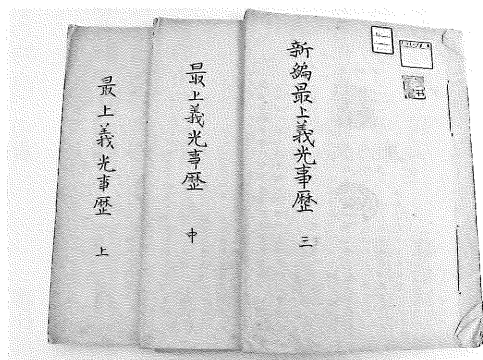 新編最上義光事歴 三
最上義光事歴 中
最上義光事歴 上